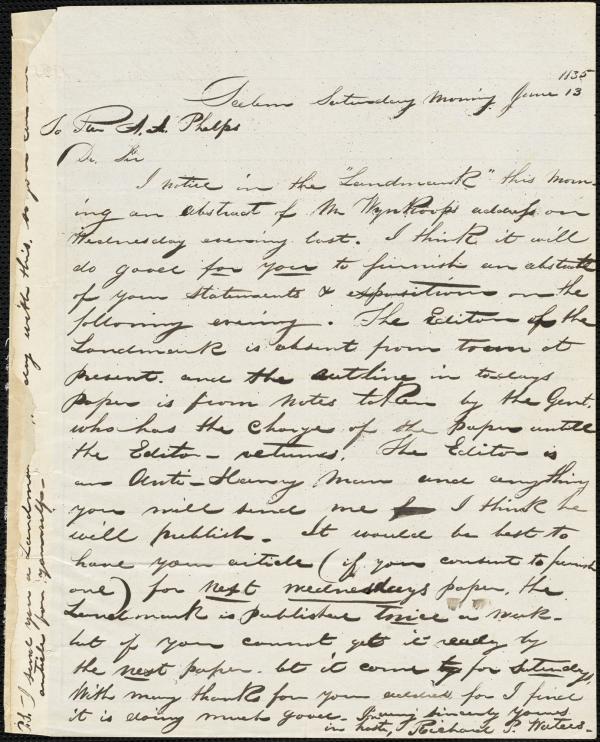 1835
Salem Saturday Morning June 13
To Rev A. A. Phelps
Dr. Sir
I notice in the "Landmark" this morn-
ing an abstract of Mr Wynkoop's address on
Wednesday evening last. I think it will
do good for you to furnish an abstract
of your statements & exposition on the
following evening. The Editor of the
Landmark is absent from town at
present. and the outline in todays
paper is from notes taken by the Gent.
who has the charge of the paper untill
the Editor - returns. The Editor is
an Anti-Slavery man and anything
you will send me I think he
will publish. It would be best to
have your article (if you consent to furnish
one) for next wednesdays paper. the
Landmark is published twice a week -
but if you cannot get it ready by
the next paper. let it come for saturday.
With many thanks for your address for I find
it is doing much good. I am sincerely yours
in haste, Richard P. Waters -
P.S. I send you a Landmark
day with this. so you can
article for yourself -